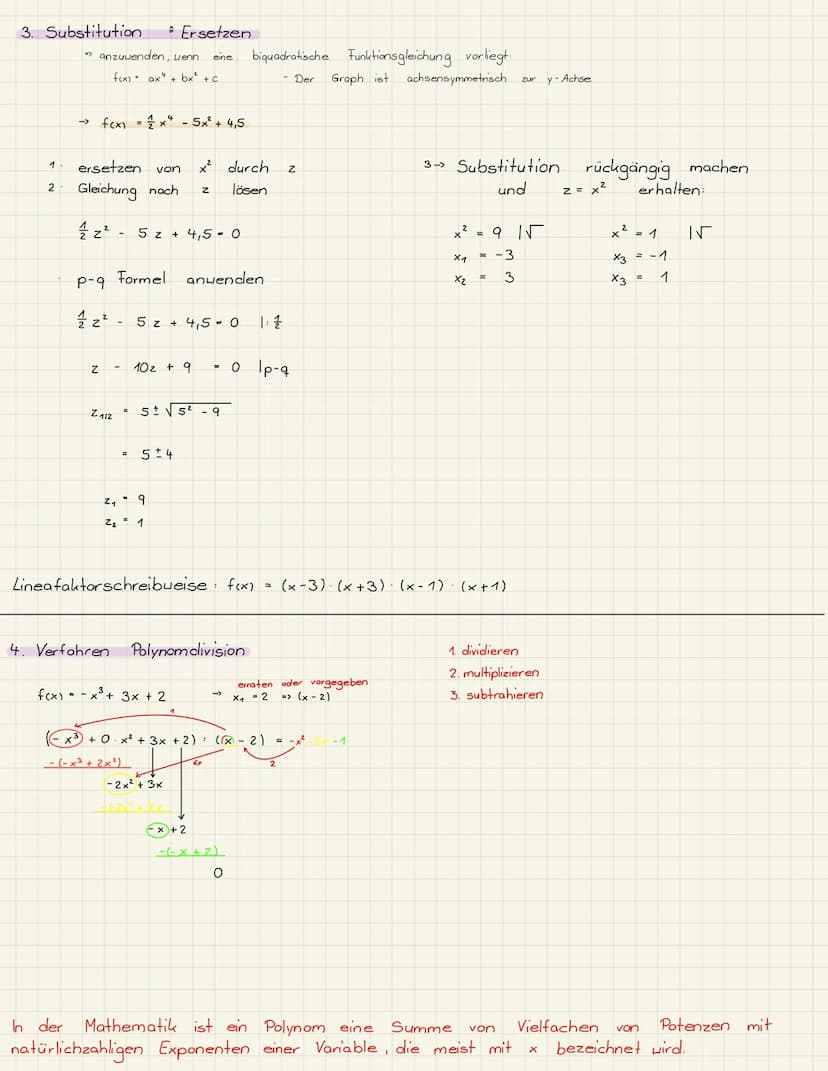 3. Substitution ⇒ Ersetzen
⇒ anzuwenden, wenn eine biquadratische Funktionsgleichung vorliegt.
f(x) = ax⁴ + bx² + c - Der Graph ist achsensymmetrisch zur y-Achse
→ f(x) = 1/2 x⁴ - 5x² + 4,5
1. ersetzen von x² durch z
2. Gleichung nach z lösen
1/2 z² - 5z + 4,5 = 0
p-q Formel anwenden
1/2 z² - 5z + 4,5 = 0 |: 1/2
z - 10z + 9 = 0 |p-q
z₁/₂ = 5 ± √5² - 9
= 5 ± 4
z₁ = 9
z₂ = 1
3→ Substitution rückgängig machen
und z = x² erhalten:
x² = 9 |√ x² = 1 |√
x₁ = -3 x₃ = -1
x₂ = 3 x₃ = 1
Lineafaktorschreibweise: f(x) = (x-3)·(x+3)·(x-1)·(x+1)
4. Verfahren Polynomdivision
erraten oder vorgegeben
f(x) = -x³ + 3x + 2 → x₁ = 2 => (x-2)
1
(-x³ + 0·x² + 3x + 2) : (x - 2) = -x² -2x -1
-(-x³ + 2x²)
2
-2x² + 3x
-x + 2
-(-x + 2)
0
1. dividieren
2. multiplizieren
3. subtrahieren
In der Mathematik ist ein Polynom eine Summe von Vielfachen von Potenzen mit
natürlichzahligen Exponenten einer Variable, die meist mit x bezeichnet wird.